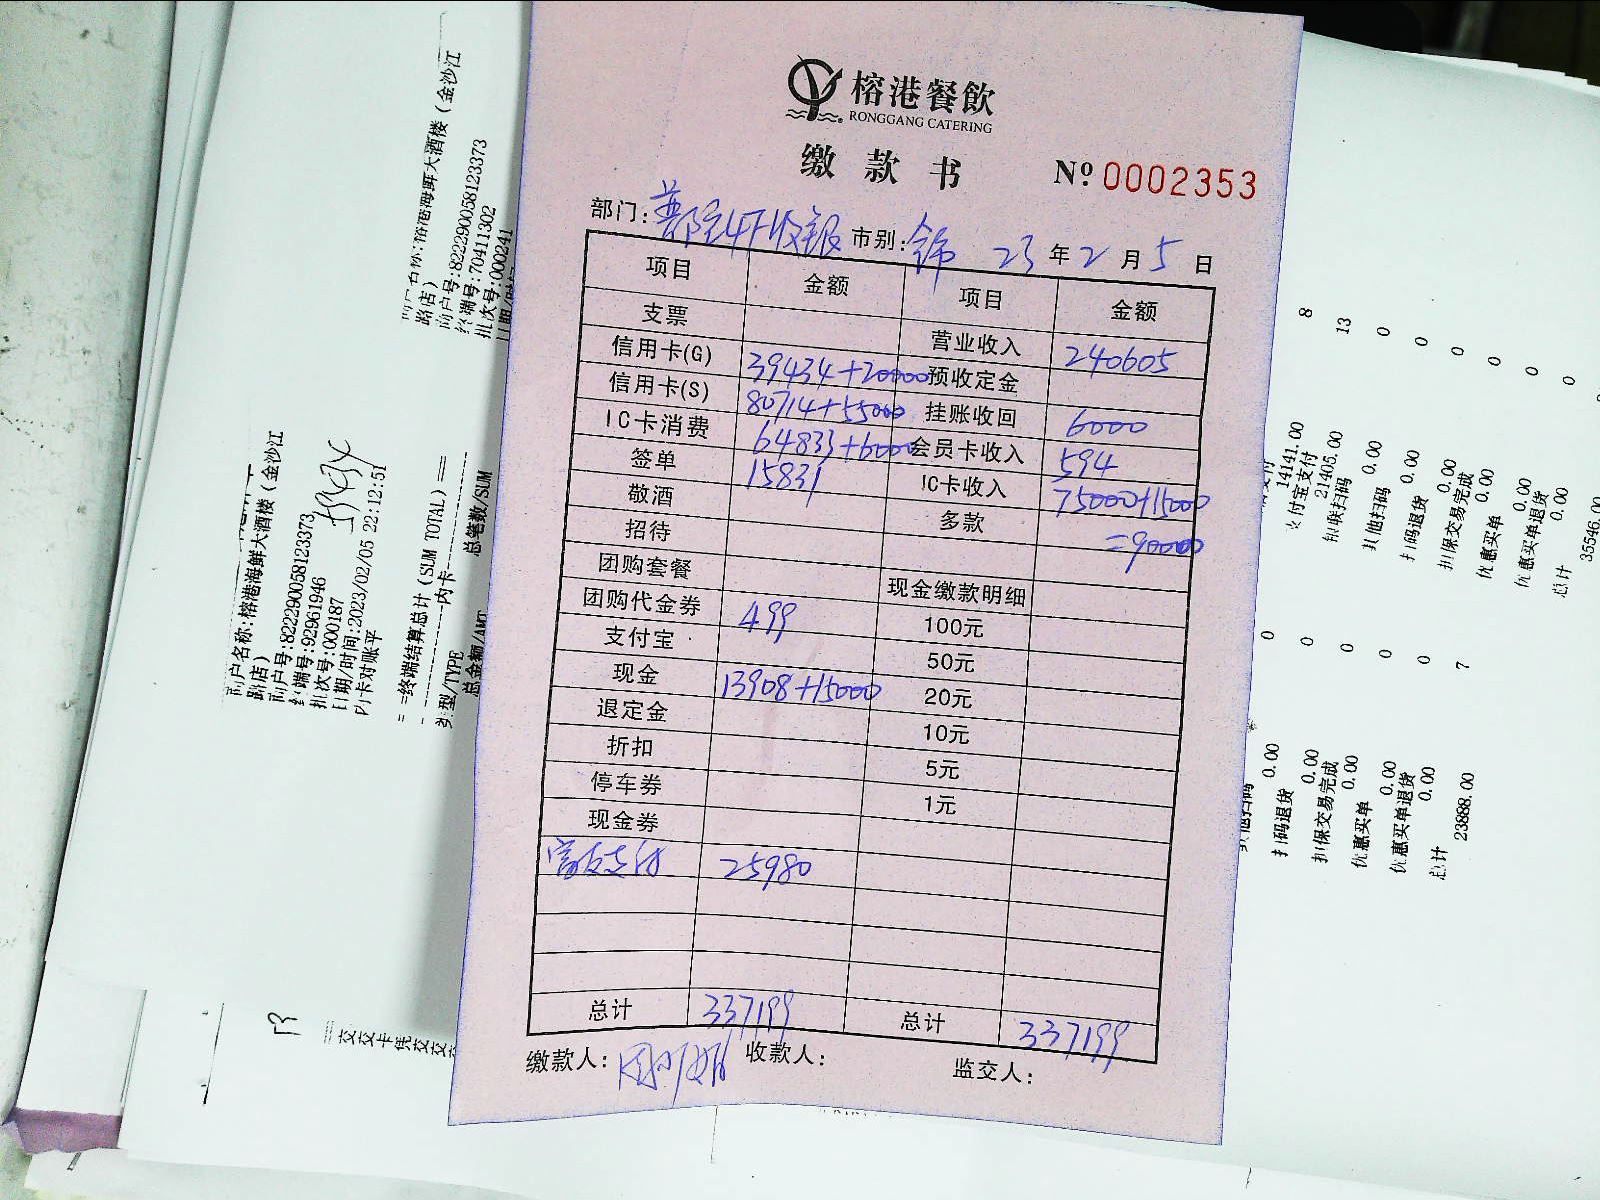 榕港餐飲
RONGGANG CATERING
缴款书 Nº 0002353
部门: 普陀4F收银 市别: 全市 23 年 2 月 5 日
项目 金额 项目 金额
支票 营业收入 240605
信用卡(G) 39434+20000 预收定金
信用卡(S) 80714+55000 挂账收回 6000
IC卡消费 64833+6000 会员卡收入 594
签单 15831 IC卡收入 75000+15000
敬酒 多款 =90000
招待
团购套餐 现金缴款明细
团购代金券 499 100元
支付宝 50元
现金 13908+15000 20元
退定金 10元
折扣 5元
停车券 1元
现金券
25980
总计 337199 总计 337199
缴款人: 收款人: 监交人:
商户名称:榕港海鲜大酒楼(金沙江
路店)
商户号:822290058123373
终端号:70411302
批次号:000241
商户名称:榕港海鲜大酒楼(金沙江
路店)
商户号:822290058123373
终端号:92961946
批次号:000187
日期/时间:2023/02/05 22:12:51
内卡对账平
==终端结算总计(SUM TOTAL)==
内卡
类型/TYPE 总笔数/SUM
总金额/AMT
8
14141.00
支付宝支付 13
21405.00
银联扫码 0
0.00
其他扫码 0
0.00
扫码退货 0
0.00
担保交易完成 0
0.00
优惠买单 0
0.00
优惠买单退货 0
0.00
总计
35546.00
0
0.00
扫码退货 0
0.00
担保交易完成 0
0.00
优惠买单 0
0.00
优惠买单退货 0
0.00
总计 7
23888.00